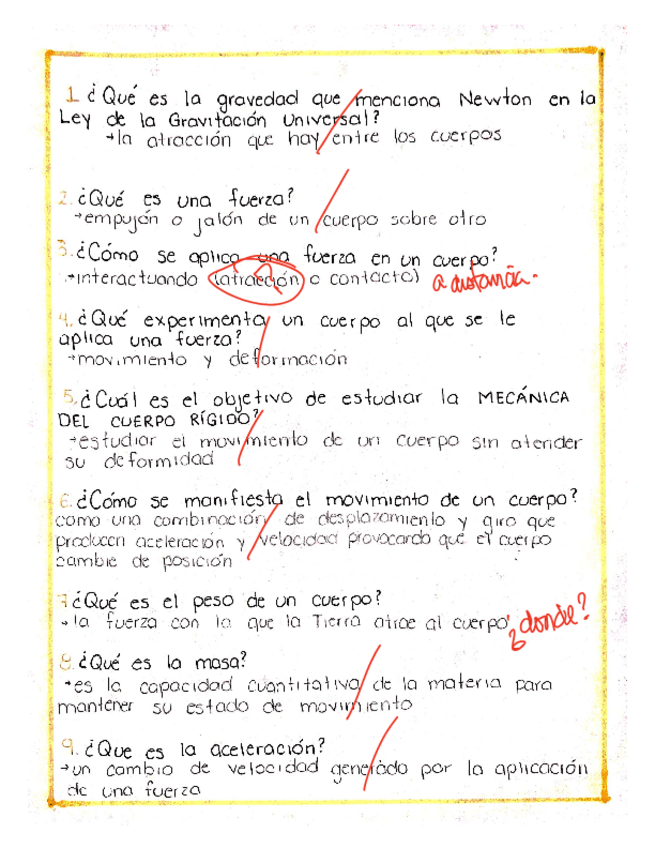 1 ¿Qué es la gravedad que menciona Newton en la
Ley de la Gravitación Universal?
→la atracción que hay entre los cuerpos
2. ¿Qué es una fuerza?
→empujón o jalón de un cuerpo sobre otro
3. ¿Cómo se aplica una fuerza en un cuerpo?
→interactuando (atracción o contacto) a distancia.
?
4. ¿Qué experimenta un cuerpo al que se le
aplica una fuerza?
→movimiento y deformación
5. ¿Cuál es el objetivo de estudiar la MECÁNICA
DEL CUERPO RÍGIDO?
→estudiar el movimiento de un cuerpo sin atender
su deformidad
6. ¿Cómo se manifiesta el movimiento de un cuerpo?
como una combinación de desplazamiento y giro que
producen aceleración y velocidad provocando que el cuerpo
cambie de posición
7 ¿Qué es el peso de un cuerpo?
→la fuerza con la que la Tierra atrae al cuerpo ¿donde?
8. ¿Qué es la masa?
→es la capacidad cuantitativa de la materia para
mantener su estado de movimiento
9. ¿Que es la aceleración?
→un cambio de velocidad generado por la aplicación
de una fuerza